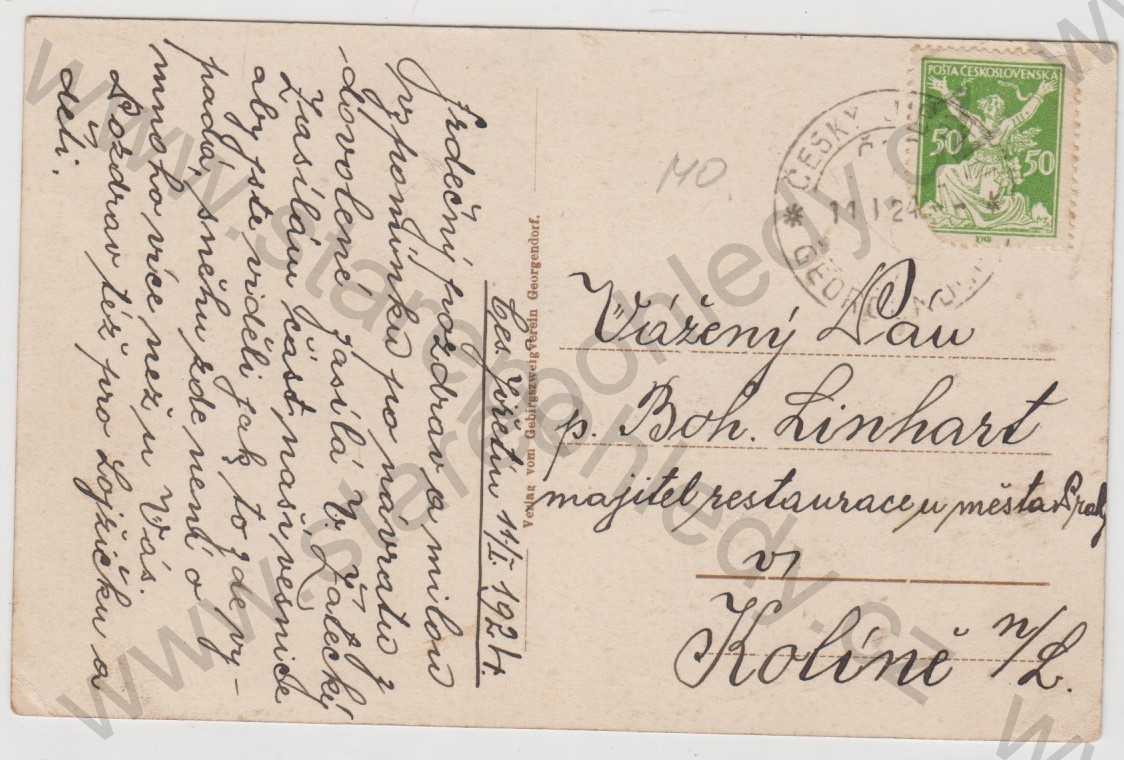 Čes. Jiřetín 11/I. 1924.
Srdečný pozdrav a milou
vzpomínku po návratu z
dovolené zasílá V. Žatecký
Zasílám část naší vesnice
aby jste viděli jak to zde vy-
padá, sněhu zde není o
mnoho více než u Vás.
Pozdrav též pro Lojzičku a
děti.
Verlag vom Gebirgszweigverein Georgendorf.
MO
POŠTA ČESKOSLOVENSKA
50 50
ČESKÝ
11 I 24
Vážený Pan
p. Boh. Linhart
majitel restaurace u města Prahy
v
Kolíně n/L.
www.starepohledy.cz
www.starepohledy.cz